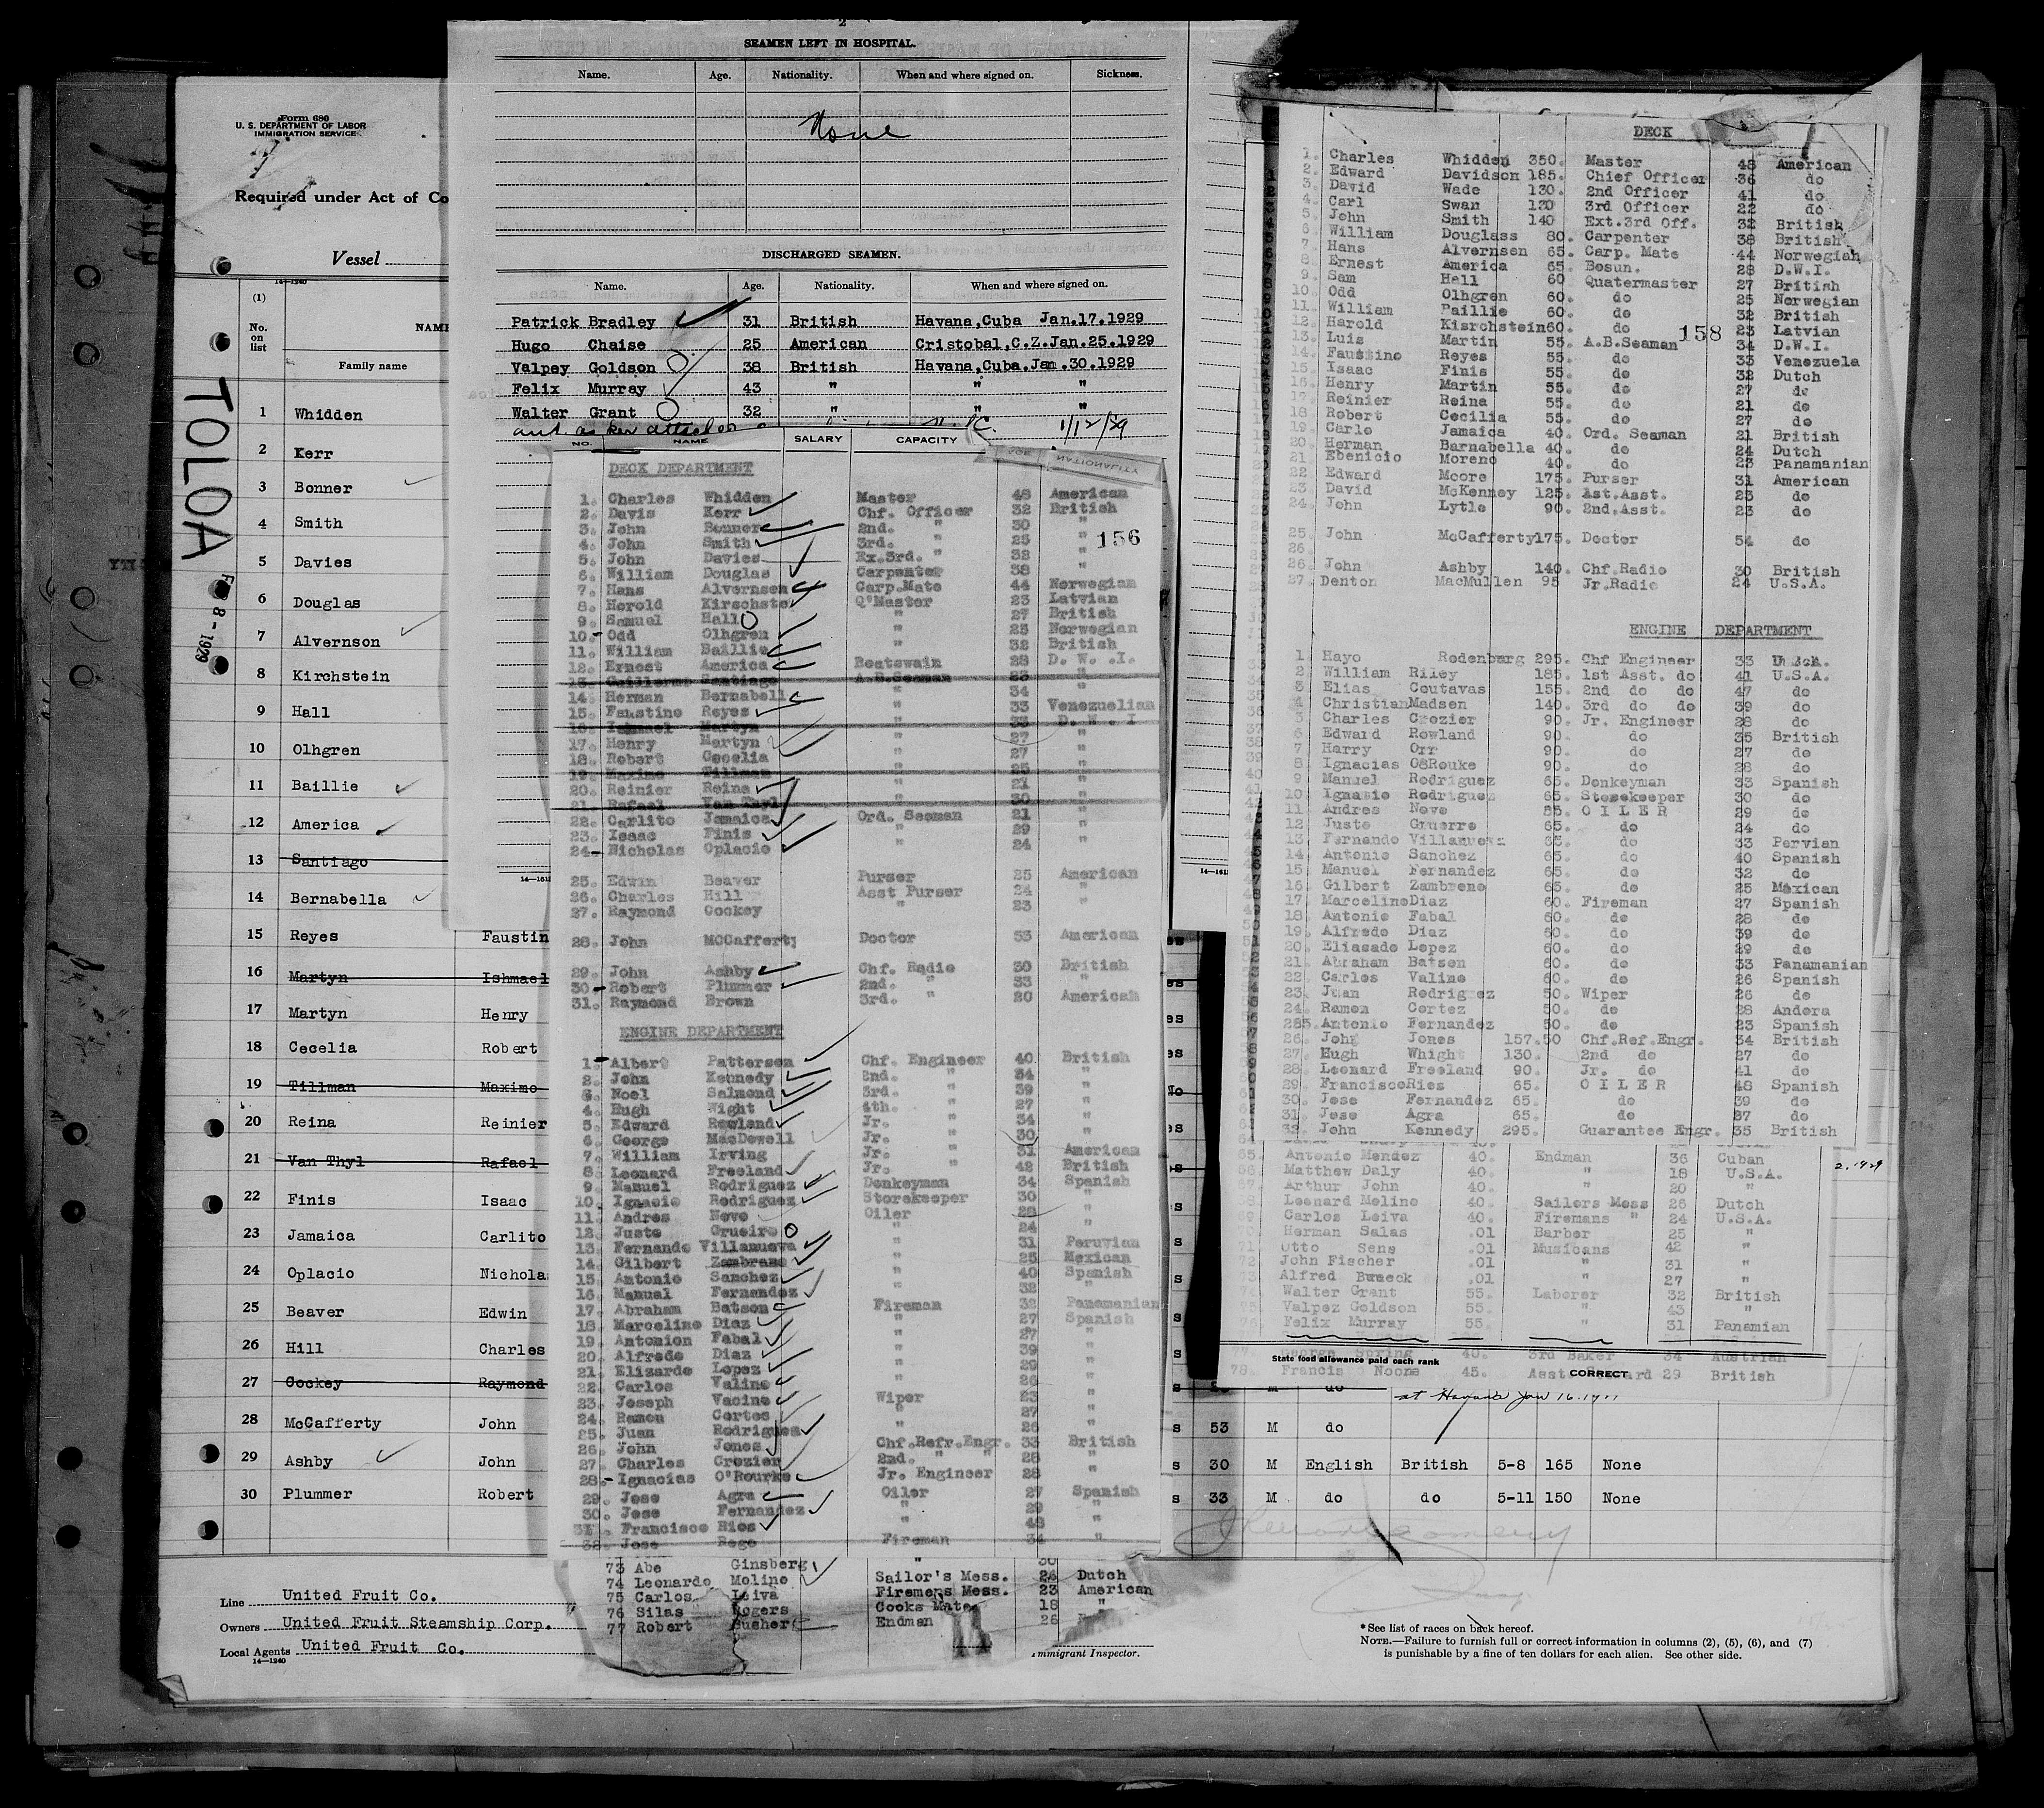 Form 680
U. S. DEPARTMENT OF LABOR
IMMIGRATION SERVICE
Required under Act of Co
Vessel
TOLOA
8-1929
14-1240
(1)
No. on list
NAME
Family name
1 Whidden
2 Kerr
3 Bonner
4 Smith
5 Davies
6 Douglas
7 Alvernson
8 Kirchstein
9 Hall
10 Olhgren
11 Baillie
12 America
13 Santiago
14 Bernabella
15 Reyes Faustin
16 Martyn Ishmael
17 Martyn Henry
18 Cecelia Robert
19 Tillman Maximo
20 Reina Reinier
21 Van Thyl Rafael
22 Finis Isaac
23 Jamaica Carlito
24 Oplacio Nichola
25 Beaver Edwin
26 Hill Charles
27 Cockey Raymond
28 McCafferty John
29 Ashby John
30 Plummer Robert
Line United Fruit Co.
Owners United Fruit Steamship Corp.
Local Agents United Fruit Co.
14-1240
2
SEAMEN LEFT IN HOSPITAL.
Name. Age. Nationality. When and where signed on. Sickness.
None
DISCHARGED SEAMEN.
Name. Age. Nationality. When and where signed on.
Patrick Bradley 31 British Havana,Cuba Jan.17.1929
Hugo Chaise 25 American Cristobal,C.Z.Jan.25.1929
Valpey Goldson 38 British Havana,Cuba.Jan.30.1929
Felix Murray 43 " " "
Walter Grant 32 " " "
1/12/29
NO. NAME SALARY CAPACITY
AGE NATIONALITY
DECK DEPARTMENT
156
1. Charles Whidden Master 48 American
2. Davis Kerr Chf. Officer 32 British
3. John Bonner 2nd. " 30 "
4. John Smith 3rd. " 25 "
5. John Davies Ex.3rd. " 32 "
6. William Douglas Carpenter 38 "
7. Hans Alvernsen Carp.Mate 44 Norwegian
8. Herold Kirschste Q'Master 23 Latvian
9. Samuel Hall " 27 British
10. Odd Olhgren " 25 Norwegian
11. William Baillie " 32 British
12. Ernest America Boatswain 28 D. W. .I.
13. Guillermo Santiago A.B.Seaman 23 "
14. Herman Bernabell " 34 "
15. Faustino Reyes " 33 Venezuelian
16. Ishmael Martyn " 23 D. W. I
17. Henry Martyn " 27 "
18. Robert Cecelia " 27 "
19. Maximo Tillman " 25 "
20. Reinier Reina " 21 "
21. Rafael Van Thyl " 30 "
22. Carlito Jamaica Ord. Seaman 21 "
23. Isaac Finis " 29 "
24. Nicholas Oplacio " 24 "
25. Edwin Beaver Purser 25 American
26. Charles Hill Asst Purser 24 "
27. Raymond Cockey " 23 "
28. John MCCafferty Doctor 53 American
29. John Ashby Chf. Radio 30 British
30. Robert Plummer 2nd. " 33 "
31. Raymond Brown 3rd. " 20 American
ENGINE DEPARTMENT
1. Albert Patterson Chf. Engineer 40 British
2. John Kennedy 2nd. " 34 "
3. Noel Salmond 3rd. " 39 "
4. Hugh Wight 4th. " 27 "
5. Edward Rowland Jr. " 34 "
6. George MacDowell Jr. " 30 "
7. William Irving Jr. " 31 American
8. Leonard Freeland Jr. " 42 British
9. Manuel Rodriguez Donkeyman 34 Spanish
10. Ignacio Rodriguez Storekeeper 30 "
11. Andres Novo Oiler 28 "
12. Justo Crueiro " 24 "
13. Fernando Villanueva " 31 Peruvian
14. Gilbert Zambrano " 25 Mexican
15. Antonio Sanchez " 40 Spanish
16. Manual Fernandez " 32 "
17. Abraham Batson Fireman 32 Panamanian
18. Marcelino Diaz " 27 Spanish
19. Antonion Fabal " 27 "
20. Alfredo Diaz " 39 "
21. Elizardo Lopez " 29 "
22. Carlos Valine " 26 "
23. Joseph Vacine Wiper 23 "
24. Ramon Cortes " 27 "
25. Juan Rodrigues " 26 "
26. John Jones Chf.Refr.Engr. 33 British
27. Charles Crozier 2nd. " " 28 "
28. Ignacias O'Rourke Jr. Engineer 28 "
29. Jose Agra Oiler 27 Spanish
30. Jose Fernandez " 29 "
31. Francisco Rios " 48 "
32. Jose Rego Fireman 34 "
73 Abe Ginsberg " 30
74 Leonardo Molino Sailor's Mess. 26 Dutch
75 Carlos Leiva Firemens Mess. 23 American
76 Silas Rogers Cooks Mate 18 "
77 Robert Busher Endman 26
Immigrant Inspector.
DECK
158
1. Charles Whidden 350. Master 48 American
2. Edward Davidson 185. Chief Officer 36 do
3. David Wade 130. 2nd Officer 41 do
4. Carl Swan 130 3rd Officer 22 do
5. John Smith 140 Ext.3rd Off. 32 British
6. William Douglass 80. Carpenter 38 British
7. Hans Alvernsen 65. Carp. Mate 44 Norwegian
8. Ernest America 65. Bosun. 28 D.W.I.
9. Sam Hall 60 Quatermaster 27 British
10. Odd Olhgren 60. do 25 Norwegian
11. William Paillie 60. do 32 British
12. Harold Kisrchstein60. do 23 Latvian
13. Luis Martin 55. A.B.Seaman 34 D.W.I.
14. Faustino Reyes 55. do 33 Venezuela
15. Isaac Finis 55. do 32 Dutch
16. Henry Martin 55. do 27 do
17. Reinier Reina 55. do 21 do
18. Robert Cecilia 55. do 27 do
19. Carlo Jamaica 40. Ord. Seaman 21 British
20. Herman Barnabella 40. do 24 Dutch
21. Ebenicio Moreno 40. do 23 Panamanian
22. Edward Moore 175. Purser 31 American
23. David McKenney 125. Ast.Asst. 23 do
24. John Lytle 90. 2nd.Asst. 23 do
25. John McCafferty175. Doctor 54 do
26.
26. John Ashby 140. Chf.Radio 30 British
27. Denton MacMullen 95 Jr.Radio 24 U.S.A.
ENGINE DEPARTMENT
1 Hayo Rodenburg 295. Chf Engineer 33 U.S.A.
2 William Riley 185. 1st Asst. do 41 U.S.A.
3 Elias Coutavas 155. 2nd do do 47 do
4 ChristianMadsen 140. 3rd do do 39 do
5 Charles Crozier 90. Jr. Engineer 28 do
6 Edward Rowland 90. do 35 British
7 Harry Orr 90. do 27 do
8 Ignacias O8Rouke 90. do 28 do
9 Manuel Rodriguez 65. Donkeyman 33 Spanish
10. Ignasio Rodriguez 65. Storekeeper 30 do
11. Andres Novo 65. O I L E R 29 do
12 Justo Gruerro 65. do 24 do
13 Fernando Villanueva 65. do 33 Pervian
14. Antonio Sanchez 65. do 40 Spanish
15 Manuel Fernandez 65. do 32 do
16. Gilbert Zambreno 65. do 25 Mexican
17 MarcelinoDiaz 60. Fireman 27 Spanish
18. Antonio Fabal 60. do 28 do
19. Alfredo Diaz 60. do 39 do
20. Eliasado Lopez 60. do 29 do
21. Abraham Batson 60. do 33 Panamanian
22. Carlos Valine 60. do 26 Spanish
23. Juan Rodrigez 50. Wiper 26 do
24. Ramon Cortez 50. do 28 Andora
285. Antonio Fernandez 50. do 23 Spanish
26. John Jones 157.50 Chf.Ref.Engr. 34 British
27. Hugh Whight 130. 2nd do 27 do
28. Leonard Freeland 90. Jr. do 41 do
29. FranciscoRios 65. O I L E R 48 Spanish
30. Jose Fernandez 65. do 39 do
31. Jose Agra 65. do 27 do
32. John Kennedy 295. Guarantee Engr. 35 British
65. Antonio Mendez 40. Endman 36 Cuban
66. Matthew Daly 40. " 18 U.S.A.
67. Arthur John 40. " 20 "
68. Leonard Moline 40. Sailors Mess 26 Dutch
69. Carlos Leiva 40. Firemans " 24 U.S.A.
70. Herman Salas .01 Barber 25 "
71. Otto Sens .01 Musicans 42 "
72. John Fischer .01 " 31 "
73 Alfred Bwaeck .01 " 27 "
74 Walter Grant 55. Laborer 32 British
75 Valpez Goldson 55. " 43 "
76. Felix Murray 55. " 31 Panamian
77. George Spring 40. 3rd Baker 34 Austrian
State food allowance paid each rank
78. Francis Noone 45. Asst Steward 29 British
CORRECT
at Havana Jan 16.19
2.1929
s 53 M do
s 30 M English British 5-8 165 None
s 33 M do do 5-11 150 None
*See list of races on back hereof.
NOTE.—Failure to furnish full or correct information in columns (2), (5), (6), and (7)
is punishable by a fine of ten dollars for each alien. See other side.